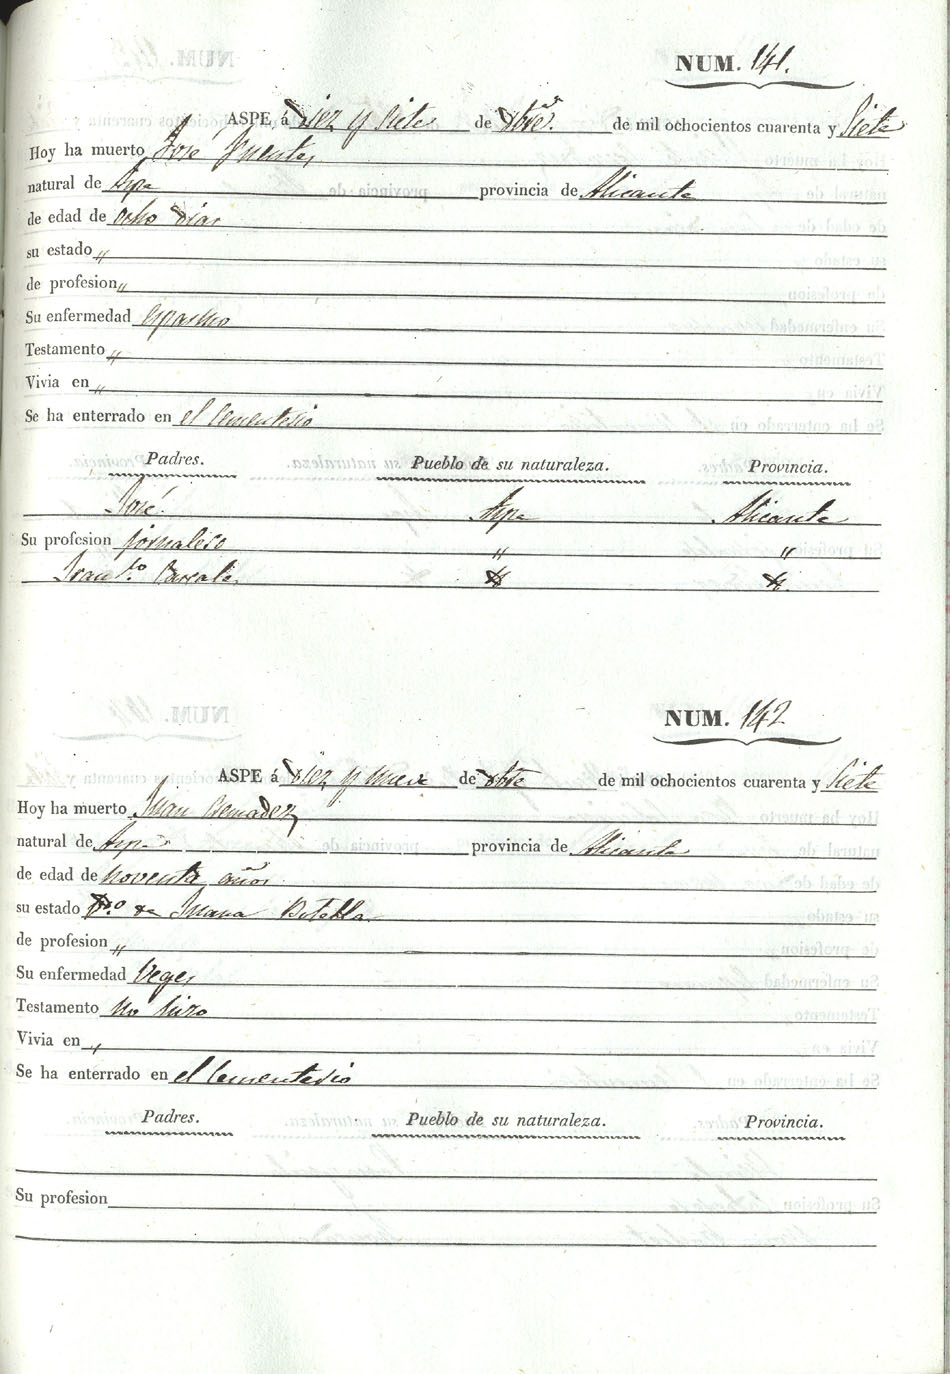 NUM. 141.
ASPE á diez y siete de de mil ochocientos cuarenta y Siete
Hoy ha muerto José Fuentes
natural de Aspe provincia de Alicante
de edad de ocho dias
su estado „
de profesion „
Su enfermedad espasmo
Testamento „
Vivia en „
Se ha enterrado en el Cementerio
Padres. Pueblo de su naturaleza. Provincia.
José Aspe Alicante
Su profesion jornalero „ „
Fran.ca
NUM. 142
ASPE á diez y nueve de de mil ochocientos cuarenta y Siete
Hoy ha muerto Juan
natural de Aspe provincia de Alicante
de edad de noventa años
su estado de Botella
de profesion „
Su enfermedad Vegez
Testamento no hizo
Vivia en „
Se ha enterrado en el Cementerio
Padres. Pueblo de su naturaleza. Provincia.
Su profesion